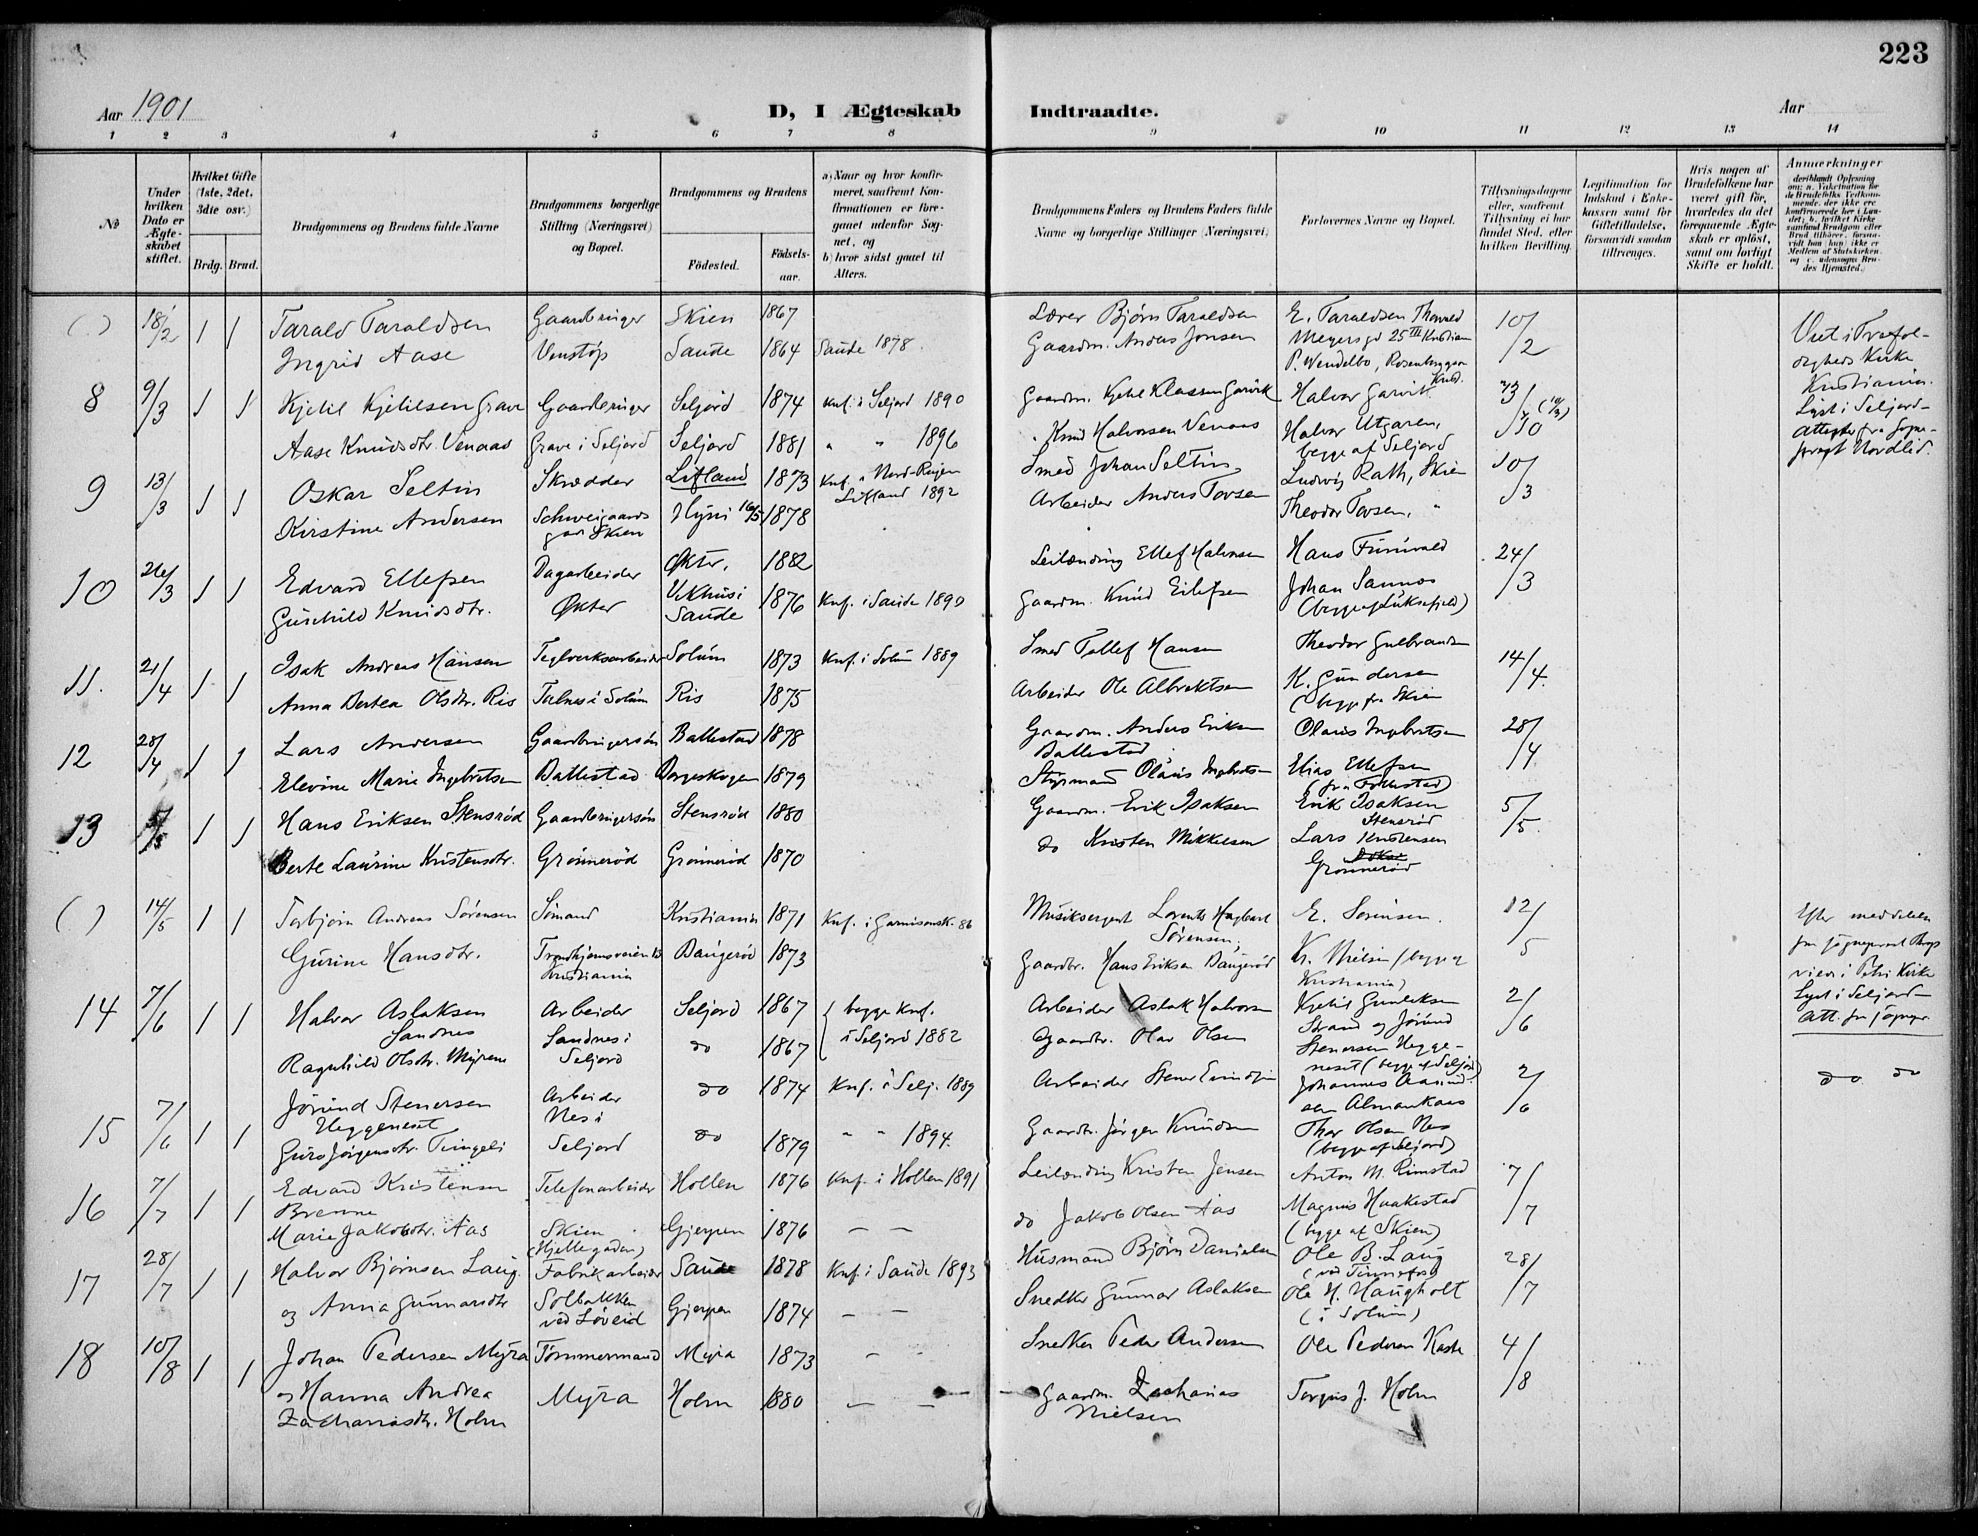 223
Aar 1901
D, I Ægteskab Indtraadte.
Aar
1 2 3 4 5 6 7 8 9 10 11 12 13 14
No
Under hvilken Dato er Ægteskabet stiftet.
Hvilket Gifte (1ste, 2det, 3die osv.)
Brdg. Brud.
Brudgommens og Brudens fulde Navne
Brudgommens borgerlige Stilling (Næringsvei) og Bopæl.
Brudgommens og Brudens
Fødested.
Fødselsaar.
a) Naar og hvor konfirmeret, saafremt Konfirmationen er foregaaet udenfor Sognet, og
b) hvor sidst gaaet til Alters.
Brudgommens Faders og Brudens Faders fulde Navne og borgerlige Stillinger (Næringsvei)
Forlovernes Navne og Bopæl.
Tillysningsdagene eller, saafremt Tillysning ei har fundet Sted, efter hvilken Bevilling.
Legitimation for Indskud i Enkekassen samt for Giftetilladelse, forsaavidt saadan tiltrænges.
Hvis nogen af Brudefolkene har været gift før, hvorledes da det foregaaende Ægteskab er opløst, samt om lovligt Skifte er holdt.
Anmærkninger
( ) 18/2 1 1 Tarald Taraldsen Gaardbruger Skien 1867 Lærer Bjørn Taraldsen E. Taraldsen Thorvald 10/2
Ingrid Aase Venstøp Saude 1864 Saude 1878 Gaardm. Anders Jonsen Meyersgd 25 III Kristian
P. Wendelbo, Rosenborggen
Viet i Trefoldigheds Kirke Kristiania.
8 9/3 1 1 Kjetil Kjetilsen Grave Gaardbruger Seljord 1874 Knf. i Seljord 1890 Gaardm. Kjetil Klassen Garvik Halvor Garvik 3/
Aase Knudsdtr. Venaas Grave i Seljord Seljord 1881 " " 1896 Knud Halvorsen Venaas Halvor Utgaren, begge af Seljord
Lyst i Seljord-
9 13/3 1 1 Oskar Seltin Skrædder Lifland 1873 Knf. i Nord-Rujen Lifland 1892 Smed Johan Seltin, Ludvig Rath, Skien 10/3
Kirstine Andersen Schweigaards gd. Skien 16/5 1878 Arbeider Anders Tovsen Theodor Tovsen, "
10 26/3 1 1 Edvard Ellefsen Dagarbeider Økter, 1882 Leilænding Ellef Halvorsen Hans Furuvald 24/3
Gunhild Knudsdtr. Økter Saude 1876 Knf. i Saude 1890 Gaardm. Knud Eilefsen Johan Sannes (begge af Luksefjeld)
11. 21/4 1 1 Isak Andreas Hansen Teglverksarbeider Solum 1873 Knf. i Solum 1889 Smed Tollef Hansen Theodor Gulbrandsen 14/4.
Anna Bertea Olsdtr. Ris i Solum Ris 1875 Arbeider Ole Albrektsen K. Gundersen (begge fra Skien
12 28/4 1 1 Lars Andersen Gaardbrugersøn Ballestad 1878 Gaardm. Anders Eriksen Ballestad Olaus Ingebretsen 28/4
Elevine Marie Ingebretsen Ballestad Borgeskogen 1879 Styrmand Olaus Ingebretsen Elias Ellefsen
13 5/5 1 1 Hans Eriksen Stensrød Gaardbrugersøn Stensrød 1880 Gaardm. Erik Isaksen Erik Isaksen Stensrød 5/5.
Berte Laurine Kristensdtr. Grønnerød Grønnerød 1870 do Kristen Mikkelsen Lars Kristensen Grønnerød
( ) 14/5 1 1 Torbjørn Andreas Sørensen Sømand Kristiania 1871 Knf. i Garnisonsk. 86 Musiksergent Lorents Hagbart Sørensen, E. Sørensen. 12/5
Gurine Hansdtr. Trondhjemsveien Kristiania Baugerød 1873 Gaardbr. Hans Eriksen Baugerød Kr. Nielsen (begge Kristiania)
Efter meddelelse fra sogneprest viede i Petri Kirke
14 7/6 1 1 Halvor Aslaksen Sandnes Arbeider Seljord 1867 begge Knf. i Seljord 1882 Arbeider Aslak Halvorsen Kjetil Gunleksen Strand og Jørund Stenersen Heggeneset (begge af Seljord) 2/6
Ragnhild Olsdtr. Myrene Sandnes i Seljord do 1867 Gaardbr. Olav Olsen
Lyst i Seljord- Att. fra sognepr.
15 7/6 1 1 Jørund Stenersen Heggeneset Arbeider Nes i Seljord do 1874 Knf. i Selj. 1889 Arbeider Stener Johannes 2/6
Guro Jørgensdtr. Tingeli do 1879 " " 1894. Gaardbr. Jørgen Knudsen Thor Olsen Nes (begge af Seljord)
do do
16 7/7 1 1 Edvard Kristensen Brenne Telefonarbeider Hollen 1876 Knf. i Hollen 1891 Leilænding Kristen Jensen Anton M. Rimstad 7/7
Marie Jakobsdtr. Aas Skien (Hjellegaden) Gjerpen 1876 — — do Jakob Olsen Aas Magnus Haakestad (begge af Skien)
17 28/7 1 1 Halvor Bjørnsen Laug. Fabrikarbeider Saude 1878 Knf. i Saude 1893 Husmand Bjørn Danielsen Ole B. Laug (ved Tinnefos) 28/7
og Anna Gunnarsdtr Solbakken ved Løveid Gjerpen 1874 — — Snedker Gunnar Aslaksen Ole H. Haugholt (i Solum)
18 10/8 1 1 Johan Pedersen Myra Tømmermand Myra 1873 - - Snedker Peder Andersen Ole Pedersen Kaste 4/8
og Hanna Andrea Zachariasdtr. Holm Myra Holm 1880 — — Gaardm. Zacharias Nielsen Torgus J. Holm